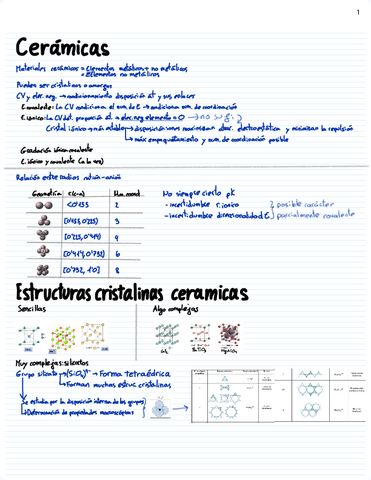 1
Cerámicas
Materiales cerámicos = Elementos metálicos + no metálicos
= Elementos no metálicos
Pueden ser cristalinos o amorfos
CV y eler. neg → condicionamiento disposición at y sus enlaces
E. covalente: la CV condiciona el num de E → condiciona num. de coordinación
E. iónico: la CV det. proporción at → elem. neg elemento = 0 → no
Cristal iónico → más estable → disposiciones maximizan atrac. electroestática y minimizan la repulsión
→ más empaquetamiento y num. de coordinación posible
Gradación iónico-covalente
E. iónico y covalente (a la vez)
Relación entre radios catión-anión
Geometría r(c-a) Num. coord.
<0'155 2
[0'155, 0'225) 3
[0'225, 0'414) 4
[0'414, 0'732) 6
[0'732, 1'0] 8
No siempre cierto pk
- incertidumbre r. iónico
- incertidumbre direccionalidad E
posible carácter
parcialmente covalente
Estructuras cristalinas ceramicas
Sencillas
Algo complejas
Muy complejas: silicatos
Grupo silicato → (SiO₄)⁴⁻ → Forma tetraédrica
→ Forman muchas estruc. cristalinas
Se estudia por la disposición interna de los grupos
→ Determinación de propiedades macroscópicas